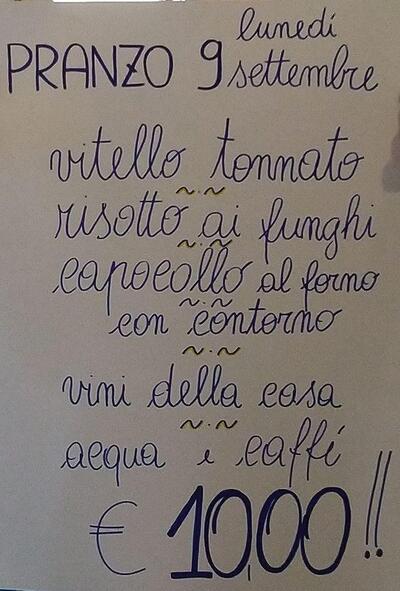 lunedí
PRANZO 9 settembre
vitello tonnato
risotto ai funghi
capocollo al forno
con contorno
vini della casa
acqua e caffé
€ 10,00!!